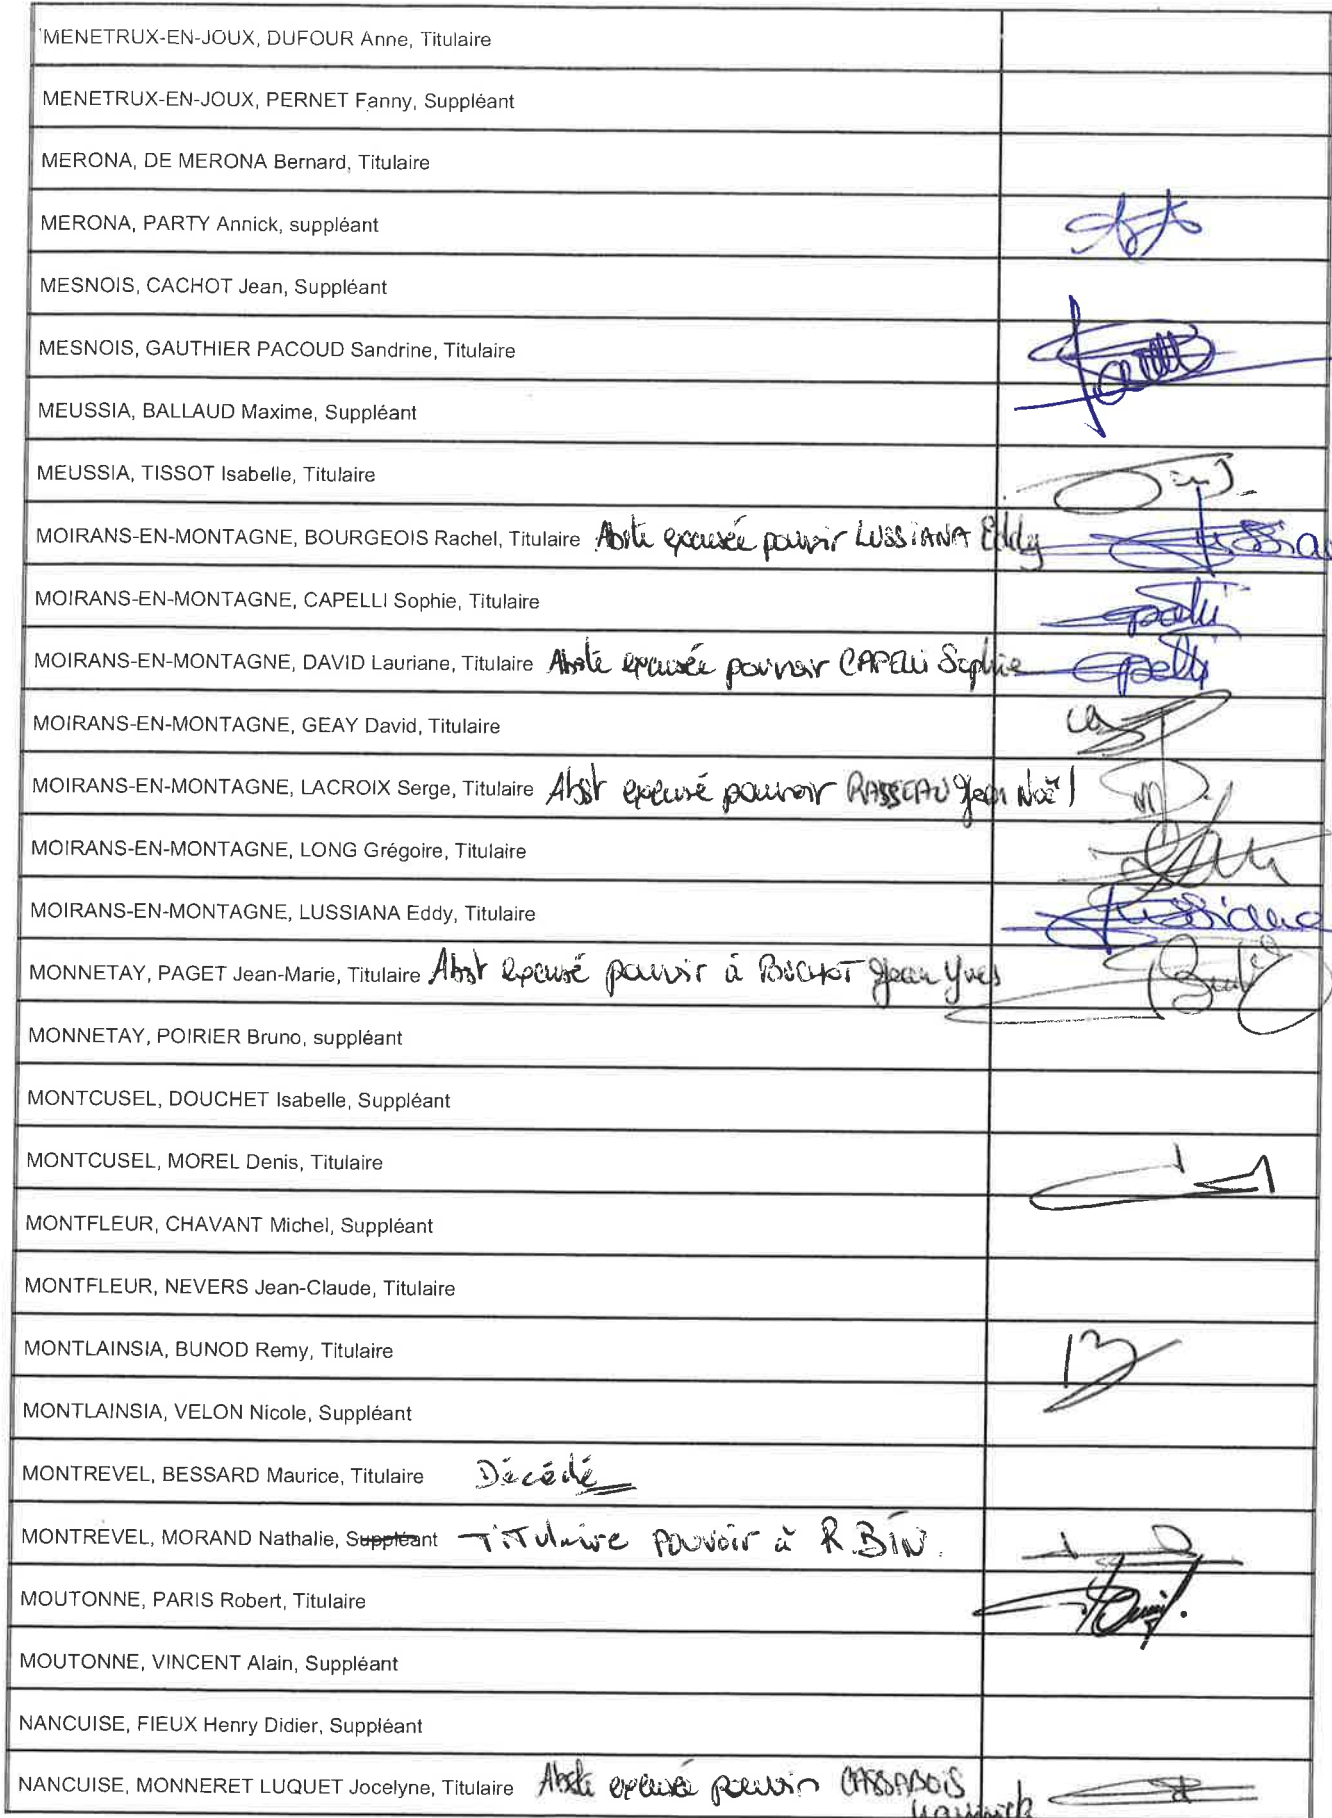 MENETRUX-EN-JOUX, DUFOUR Anne, Titulaire
MENETRUX-EN-JOUX, PERNET Fanny, Suppléant
MERONA, DE MERONA Bernard, Titulaire
MERONA, PARTY Annick, suppléant
MESNOIS, CACHOT Jean, Suppléant
MESNOIS, GAUTHIER PACOUD Sandrine, Titulaire
MEUSSIA, BALLAUD Maxime, Suppléant
MEUSSIA, TISSOT Isabelle, Titulaire
MOIRANS-EN-MONTAGNE, BOURGEOIS Rachel, Titulaire Abste excusée pouvoir LUSSIANA Eddy
MOIRANS-EN-MONTAGNE, CAPELLI Sophie, Titulaire
MOIRANS-EN-MONTAGNE, DAVID Lauriane, Titulaire Abste excusée pouvoir CAPELLI Sophie
MOIRANS-EN-MONTAGNE, GEAY David, Titulaire
MOIRANS-EN-MONTAGNE, LACROIX Serge, Titulaire Abst excusé pouvoir RASSEAU Jean Noël
MOIRANS-EN-MONTAGNE, LONG Grégoire, Titulaire
MOIRANS-EN-MONTAGNE, LUSSIANA Eddy, Titulaire Lussiana
MONNETAY, PAGET Jean-Marie, Titulaire Abst excusé pouvoir à BUCHOT Jean Yves
MONNETAY, POIRIER Bruno, suppléant
MONTCUSEL, DOUCHET Isabelle, Suppléant
MONTCUSEL, MOREL Denis, Titulaire
MONTFLEUR, CHAVANT Michel, Suppléant
MONTFLEUR, NEVERS Jean-Claude, Titulaire
MONTLAINSIA, BUNOD Remy, Titulaire
MONTLAINSIA, VELON Nicole, Suppléant
MONTREVEL, BESSARD Maurice, Titulaire Décédé
MONTREVEL, MORAND Nathalie, Suppléant Titulaire pouvoir à R BIN.
MOUTONNE, PARIS Robert, Titulaire
MOUTONNE, VINCENT Alain, Suppléant
NANCUISE, FIEUX Henry Didier, Suppléant
NANCUISE, MONNERET LUQUET Jocelyne, Titulaire Abste excusée pouvoir CASSABOIS
Yannick